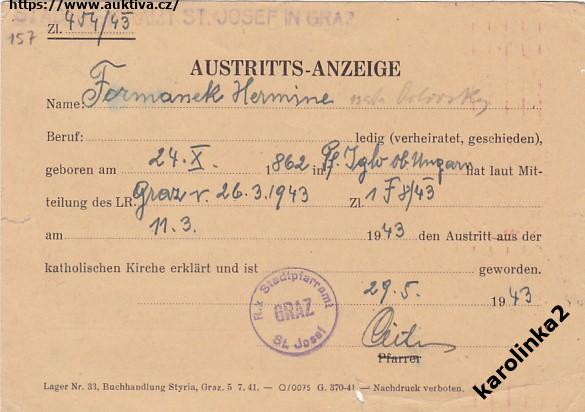 https://www.auktiva.cz/
ST. JOSEF IN GRAZ
Zl. 454/43
157
AUSTRITTS-ANZEIGE
Name: Formanek Hermine
Beruf: ledig (verheiratet, geschieden),
geboren am 24. X. 1862 in Pf. Iglo ob. Ungarn hat laut Mit-
teilung des LR. Graz v. 26.3.1943 Zl. 1 F 8/43
am 11.3. 1943 den Austritt aus der
katholischen Kirche erklärt und ist geworden.
29.5. 1943
R.k. Stadtpfarramt
GRAZ
St. Josef
Pfarrer
Lager Nr. 33, Buchhandlung Styria, Graz. 5 7. 41. — Q/0075 G. 370-41 — Nachdruck verboten.
karolinka2